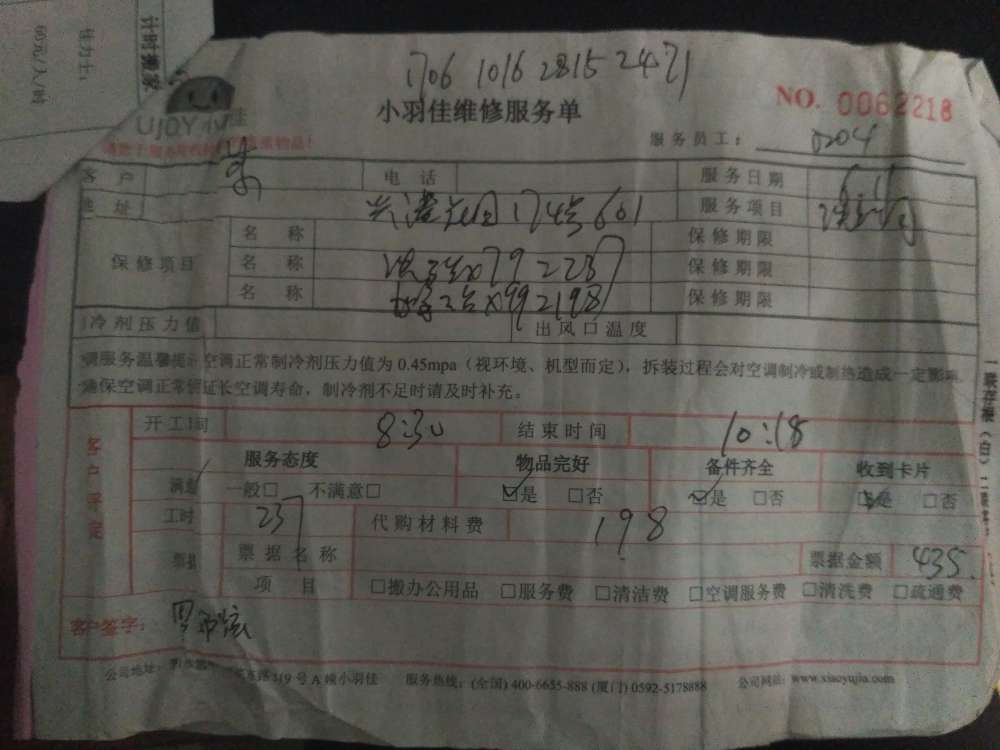 计时搬家
佳力士:
60元/人/时
1706 1016 2815 2471
小羽佳维修服务单
NO. 0062218
UJOY
服务员工: 0204
客户 电话 服务日期
地址 174号601 服务项目
保修项目 名称 保修期限
名称 79 2 237 保修期限
名称 99 2 198 保修期限
冷剂压力值 出风口温度
调服务温馨提示 空调正常制冷剂压力值为 0.45mpa (视环境、机型而定), 拆装过程会对空调制冷或制热造成一定影响
确保空调正常 延长空调寿命, 制冷剂不足时请及时补充。
开工时间 8:30 结束时间 10:18
服务态度 物品完好 备件齐全 收到卡片
满意 一般□ 不满意□ ☑是 □否 ☑是 □否 ☑是 □否
工时 237 代购材料费 198
票据名称 票据金额 435
项目 □搬办公用品 □服务费 □清洁费 □空调服务费 □清洗费 □疏通费
客户签字:
公司地址: 东路319号A幢小羽佳 服务热线: (全国) 400-6655-888 (厦门) 0592-5178888 公司网站: www.xiaoyujia.com